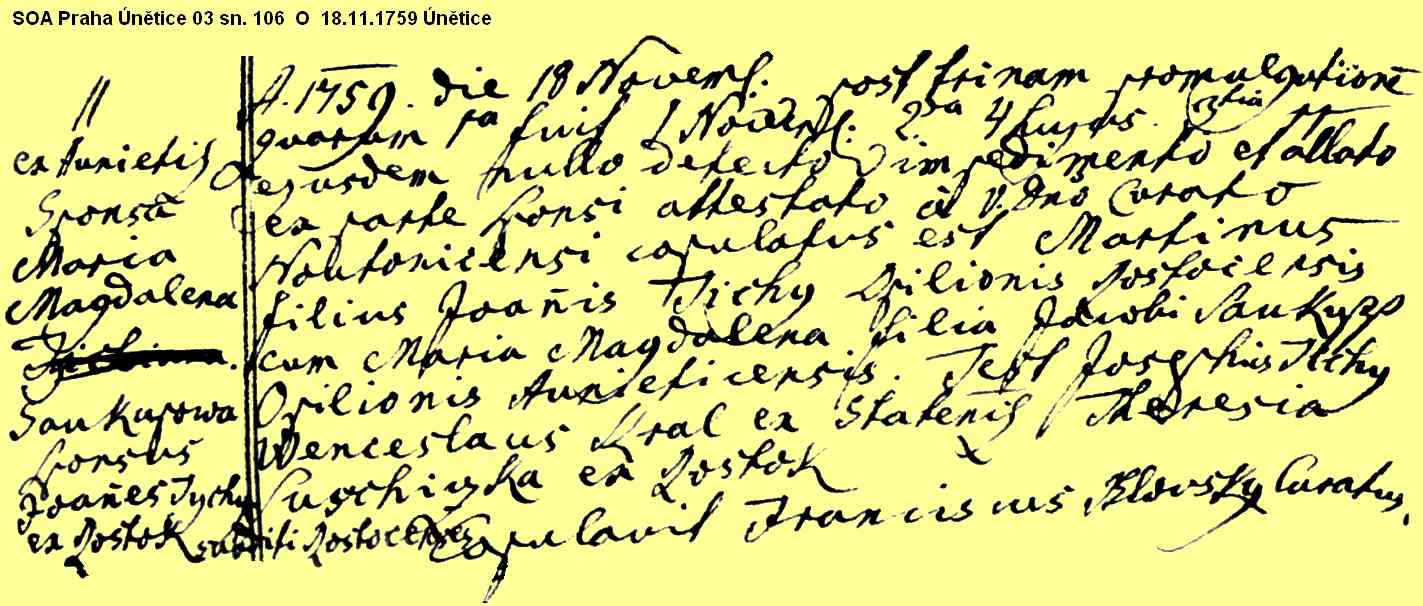 SOA Praha Únětice 03 sn. 106 O 18.11.1759 Únětice
//
ex Aunietiz
Sponsa
Maria
Magdalena
Saukupowa
Sponsus
Joañes Tychy
ex Rostok subditi Rostocenses
A. 1759. die 18 Novemb. post trinam promulgationē
quarum 1ma fuit 1 Novemb. 2da 4 hujus. 3tia
ejusdem nullo detecto impedimento et allato
ex parte sponsi attestato à V. Dno Curato
Noutonicensi copulatus est Martinus
filius Joañis Tichy Opilionis Rostocensis
cum Maria Magdalena filia Jacobi Saukup
Opilionis Aunieticensis. Test Josephus Tichy
Wenceslaus Kral ex Stateniz Theresia
ex Rostok
Copulavit Franciscus Curatus.